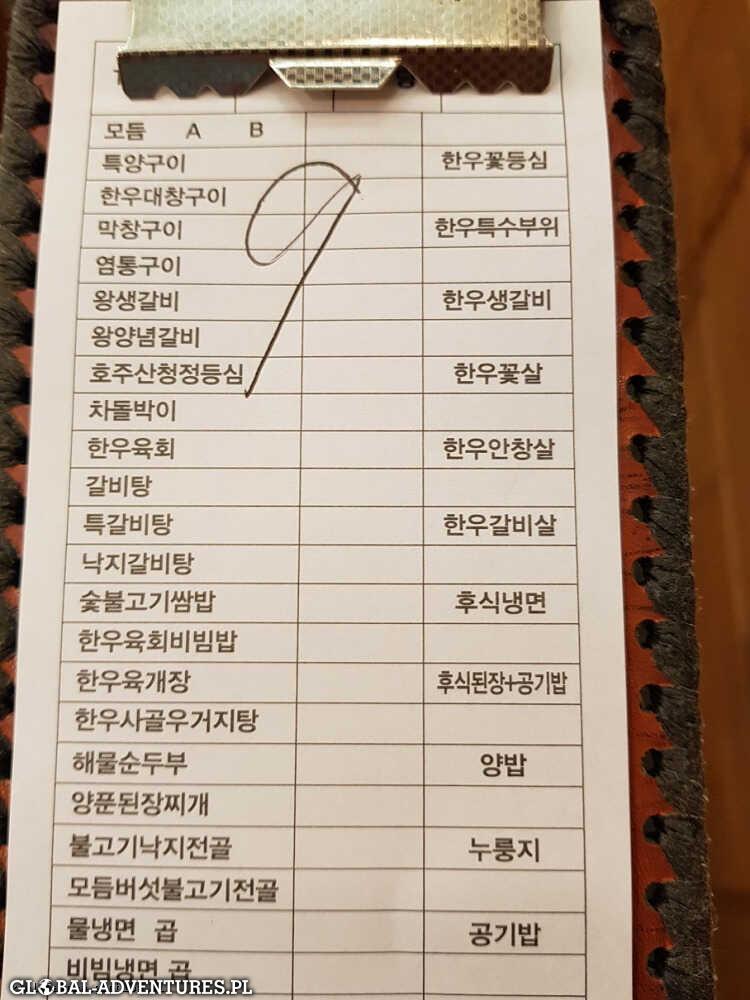 모듬 A B
특양구이 한우꽃등심
한우대창구이
막창구이 한우특수부위
염통구이
왕생갈비 한우생갈비
왕양념갈비
호주산청정등심 한우꽃살
차돌박이
한우육회 한우안창살
갈비탕
특갈비탕 한우갈비살
낙지갈비탕
숯불고기쌈밥 후식냉면
한우육회비빔밥
한우육개장 후식된장+공기밥
한우사골우거지탕
해물순두부 양밥
양푼된장찌개
불고기낙지전골 누룽지
모듬버섯불고기전골
물냉면 곱 공기밥
비빔냉면 곱
9
GLOBAL-ADVENTURES.PL